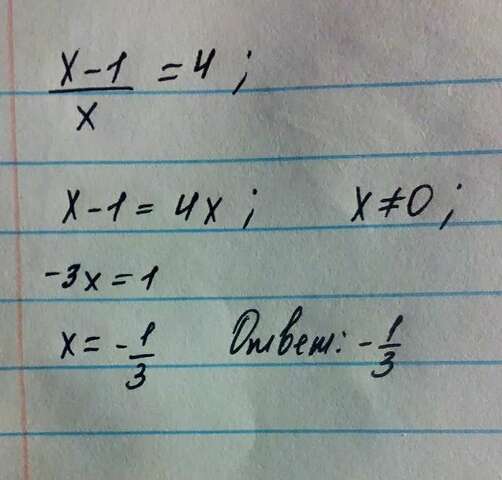 x-1/x = 4 ;
x-1 = 4x ; x≠0 ;
-3x = 1
x = -1/3 Ответ: -1/3